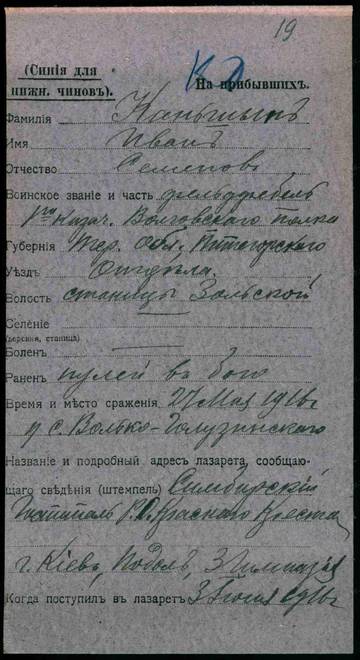 19
(Синія для
нижн. чиновъ).
На прибывшихъ.
Фамилія Каншинъ
Имя Иванъ
Отчество Семеновъ
Воинское званіе и часть фельдфебель
1го Казач. Волгскаго полка
Губернія Тер. Обл. Пятигорскаго
Уѣздъ Отдѣла.
Волость станицы Зольской
Селеніе
(деревня, станица)
Боленъ
Раненъ пулей въ бою
Время и мѣсто сраженія 27 Мая 1916г
у с.
Названіе и подробный адресъ лазарета, сообщаю-
щаго свѣдѣнія (штемпель) Симбирскій
Госпиталь Краснаго Креста
г. Кіевъ, Подолъ, 3 Гимназія
Когда поступилъ въ лазаретъ 3 Іюня 1916г